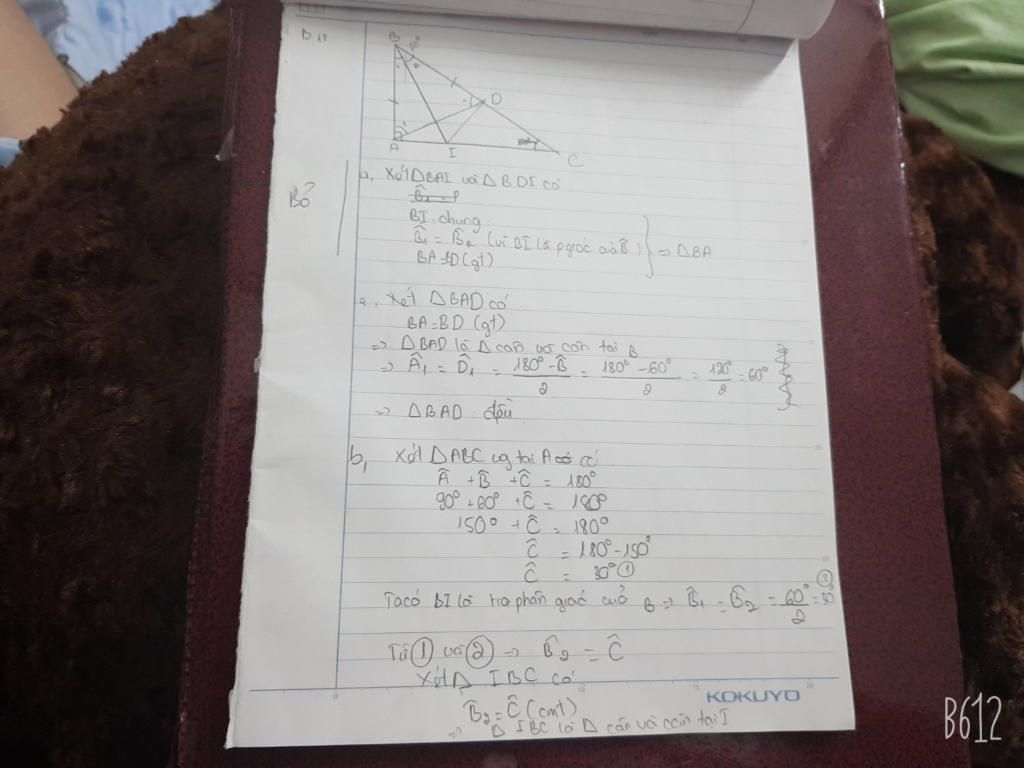 B
D
A
I
C
a, Xét ΔBAI và ΔBDI có
Bỏ
BI chung
B̂₁ = B̂₂ (vì BI là pgiác của B̂) } => ΔBA
BA=BD (gt)
a, Xét ΔBAD có
BA=BD (gt)
=> ΔBAD là Δ cân và cân tại B
=> Â₁ = D̂₁ = (180° - B̂)/2 = (180° - 60°)/2 = 120°/2 = 60°
=> ΔBAD đều
b, Xét ΔABC vg tại A có
Â + B̂ + Ĉ = 180°
90° + 60° + Ĉ = 180°
150° + Ĉ = 180°
Ĉ = 180° - 150°
Ĉ = 30° ①
Ta có BI là tia phân giác của B => B̂₁ = B̂₂ = 60°/2 = 30° ②
Từ ① và ② => B̂₂ = Ĉ
Xét Δ IBC có
B̂₂ = Ĉ (cmt)
=> Δ IBC là Δ cân và cân tại I
KOKUYO
B612